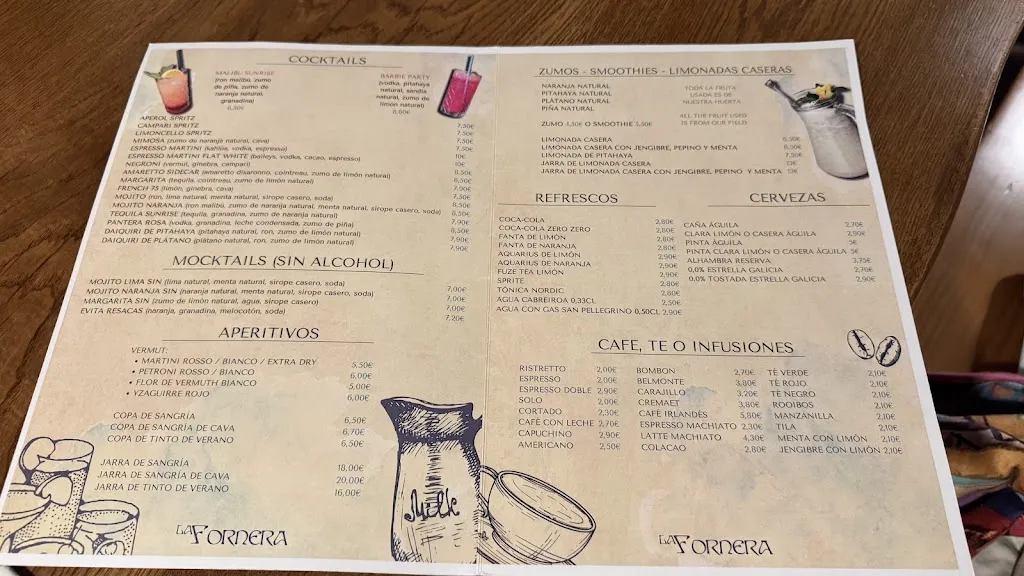 COCKTAILS
MALIBU SUNRISE
(ron malibú, zumo
de piña, zumo de
naranja natural,
granadina)
8,50€
BARBIE PARTY
(vodka, pitahaya
natural, sandía
natural, zumo de
limón natural)
8,60€
APEROL SPRITZ 7,50€
CAMPARI SPRITZ 7,50€
LIMONCELLO SPRITZ 7,50€
MIMOSA (zumo de naranja natural, cava) 7,50€
ESPRESSO MARTINI (kahlúa, vodka, espresso) 10€
ESPRESSO MARTINI FLAT WHITE (baileys, vodka, cacao, espresso) 10€
NEGRONI (vermut, ginebra, campari) 8,50€
AMARETTO SIDECAR (amaretto disaronno, cointreau, zumo de limón natural) 8,50€
MARGARITA (tequila, cointreau, zumo de limón natural) 7,90€
FRENCH 75 (limón, ginebra, cava) 7,50€
MOJITO (ron, lima natural, menta natural, sirope casero, soda) 7,50€
MOJITO NARANJA (ron malibú, zumo de naranja natural, menta natural, sirope casero, soda) 8,50€
TEQUILA SUNRISE (tequila, granadina, zumo de naranja natural) 7,90€
PANTERA ROSA (vodka, granadina, leche condensada, zumo de piña) 8,50€
DAIQUIRI DE PITAHAYA (pitahaya natural, ron, zumo de limón natural) 7,90€
DAIQUIRI DE PLÁTANO (plátano natural, ron, zumo de limón natural) 7,90€
MOCKTAILS (SIN ALCOHOL)
MOJITO LIMA SIN (lima natural, menta natural, sirope casero, soda) 7,00€
MOJITO NARANJA SIN (naranja natural, menta natural, sirope casero, soda) 7,00€
MARGARITA SIN (zumo de limón natural, agua, sirope casero) 7,00€
EVITA RESACAS (naranja, granadina, melocotón, soda) 7,20€
APERITIVOS
VERMUT:
• MARTINI ROSSO / BIANCO / EXTRA DRY 5,50€
• PETRONI ROSSO / BIANCO 6,00€
• FLOR DE VERMUTH BIANCO 5,00€
• YZAGUIRRE ROJO 6,00€
COPA DE SANGRÍA 6,50€
COPA DE SANGRÍA DE CAVA 6,70€
COPA DE TINTO DE VERANO 6,50€
JARRA DE SANGRÍA 18,00€
JARRA DE SANGRÍA DE CAVA 20,00€
JARRA DE TINTO DE VERANO 16,00€
LA FORNERA
Milk
ZUMOS - SMOOTHIES - LIMONADAS CASERAS
NARANJA NATURAL
PITAHAYA NATURAL
PLÁTANO NATURAL
PIÑA NATURAL
TODA LA FRUTA
USADA ES DE
NUESTRA HUERTA
ALL THE FRUIT USED
IS FROM OUR FIELD
ZUMO 4,50€ O SMOOTHIE 5,50€
LIMONADA CASERA 6,50€
LIMONADA CASERA CON JENGIBRE, PEPINO Y MENTA 6,50€
LIMONADA DE PITAHAYA 7,50€
JARRA DE LIMONADA CASERA 13€
JARRA DE LIMONADA CASERA CON JENGIBRE, PEPINO Y MENTA 13€
REFRESCOS
COCA-COLA 2,80€
COCA-COLA ZERO ZERO 2,80€
FANTA DE LIMÓN 2,80€
FANTA DE NARANJA 2,80€
AQUARIUS DE LIMÓN 2,90€
AQUARIUS DE NARANJA 2,90€
FUZE TEA LIMÓN 2,90€
SPRITE 2,80€
TÓNICA NORDIC 2,80€
AGUA CABREIROA 0,33CL 2,50€
AGUA CON GAS SAN PELLEGRINO 0,50CL 2,90€
CERVEZAS
CAÑA ÁGUILA 2,70€
CLARA LIMÓN O CASERA ÁGUILA 2,90€
PINTA ÁGUILA 5€
PINTA CLARA LIMÓN O CASERA ÁGUILA 5€
ALHAMBRA RESERVA 3,75€
0,0% ESTRELLA GALICIA 2,70€
0,0% TOSTADA ESTRELLA GALICIA 2,90€
CAFE, TE O INFUSIONES
RISTRETTO 2,00€
ESPRESSO 2,00€
ESPRESSO DOBLE 2,90€
SOLO 2,00€
CORTADO 2,30€
CAFÉ CON LECHE 2,70€
CAPUCHINO 2,90€
AMERICANO 2,50€
BOMBON 2,70€
BELMONTE 3,80€
CARAJILLO 3,20€
CREMAET 3,80€
CAFÉ IRLANDÉS 5,80€
ESPRESSO MACHIATO 2,30€
LATTE MACHIATO 4,30€
COLACAO 2,80€
TÉ VERDE 2,10€
TÉ ROJO 2,10€
TÉ NEGRO 2,10€
ROOIBOS 2,10€
MANZANILLA 2,10€
TILA 2,10€
MENTA CON LIMÓN 2,10€
JENGIBRE CON LIMÓN 2,10€
LA FORNERA